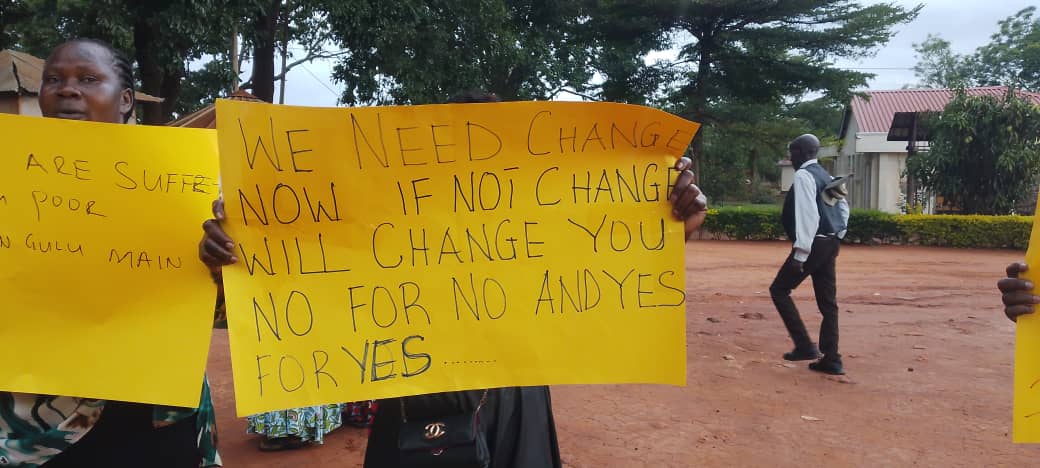 ARE SUFFE
POOR
GULU MAIN
WE NEED CHANGE
NOW IF NOT CHANGE
WILL CHANGE YOU
NO FOR NO AND YES
FOR YES ........